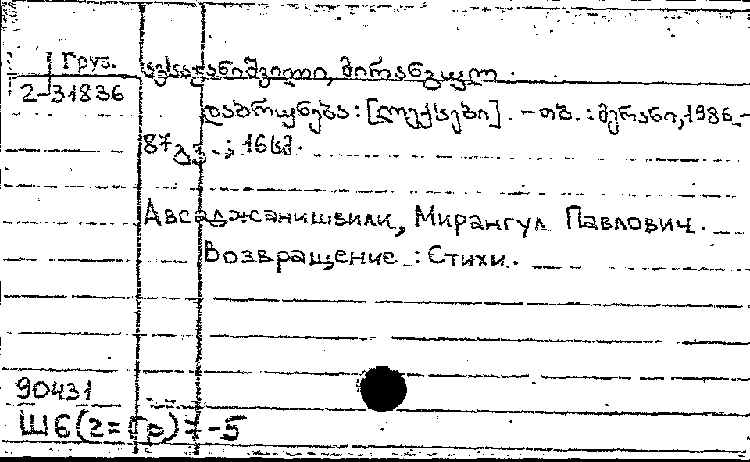 Груз.
2-31836
ავსაჯანიშვილი, მირანგულ.
დაბრუნება: [ლექსები]. - თბ.: მერანი, 1986. -
87გვ.; 16სმ.
Авсаджанишвили, Мирангул Павлович.
Возвращение: Стихи.
90431
Ш6(2=Гр)7-5